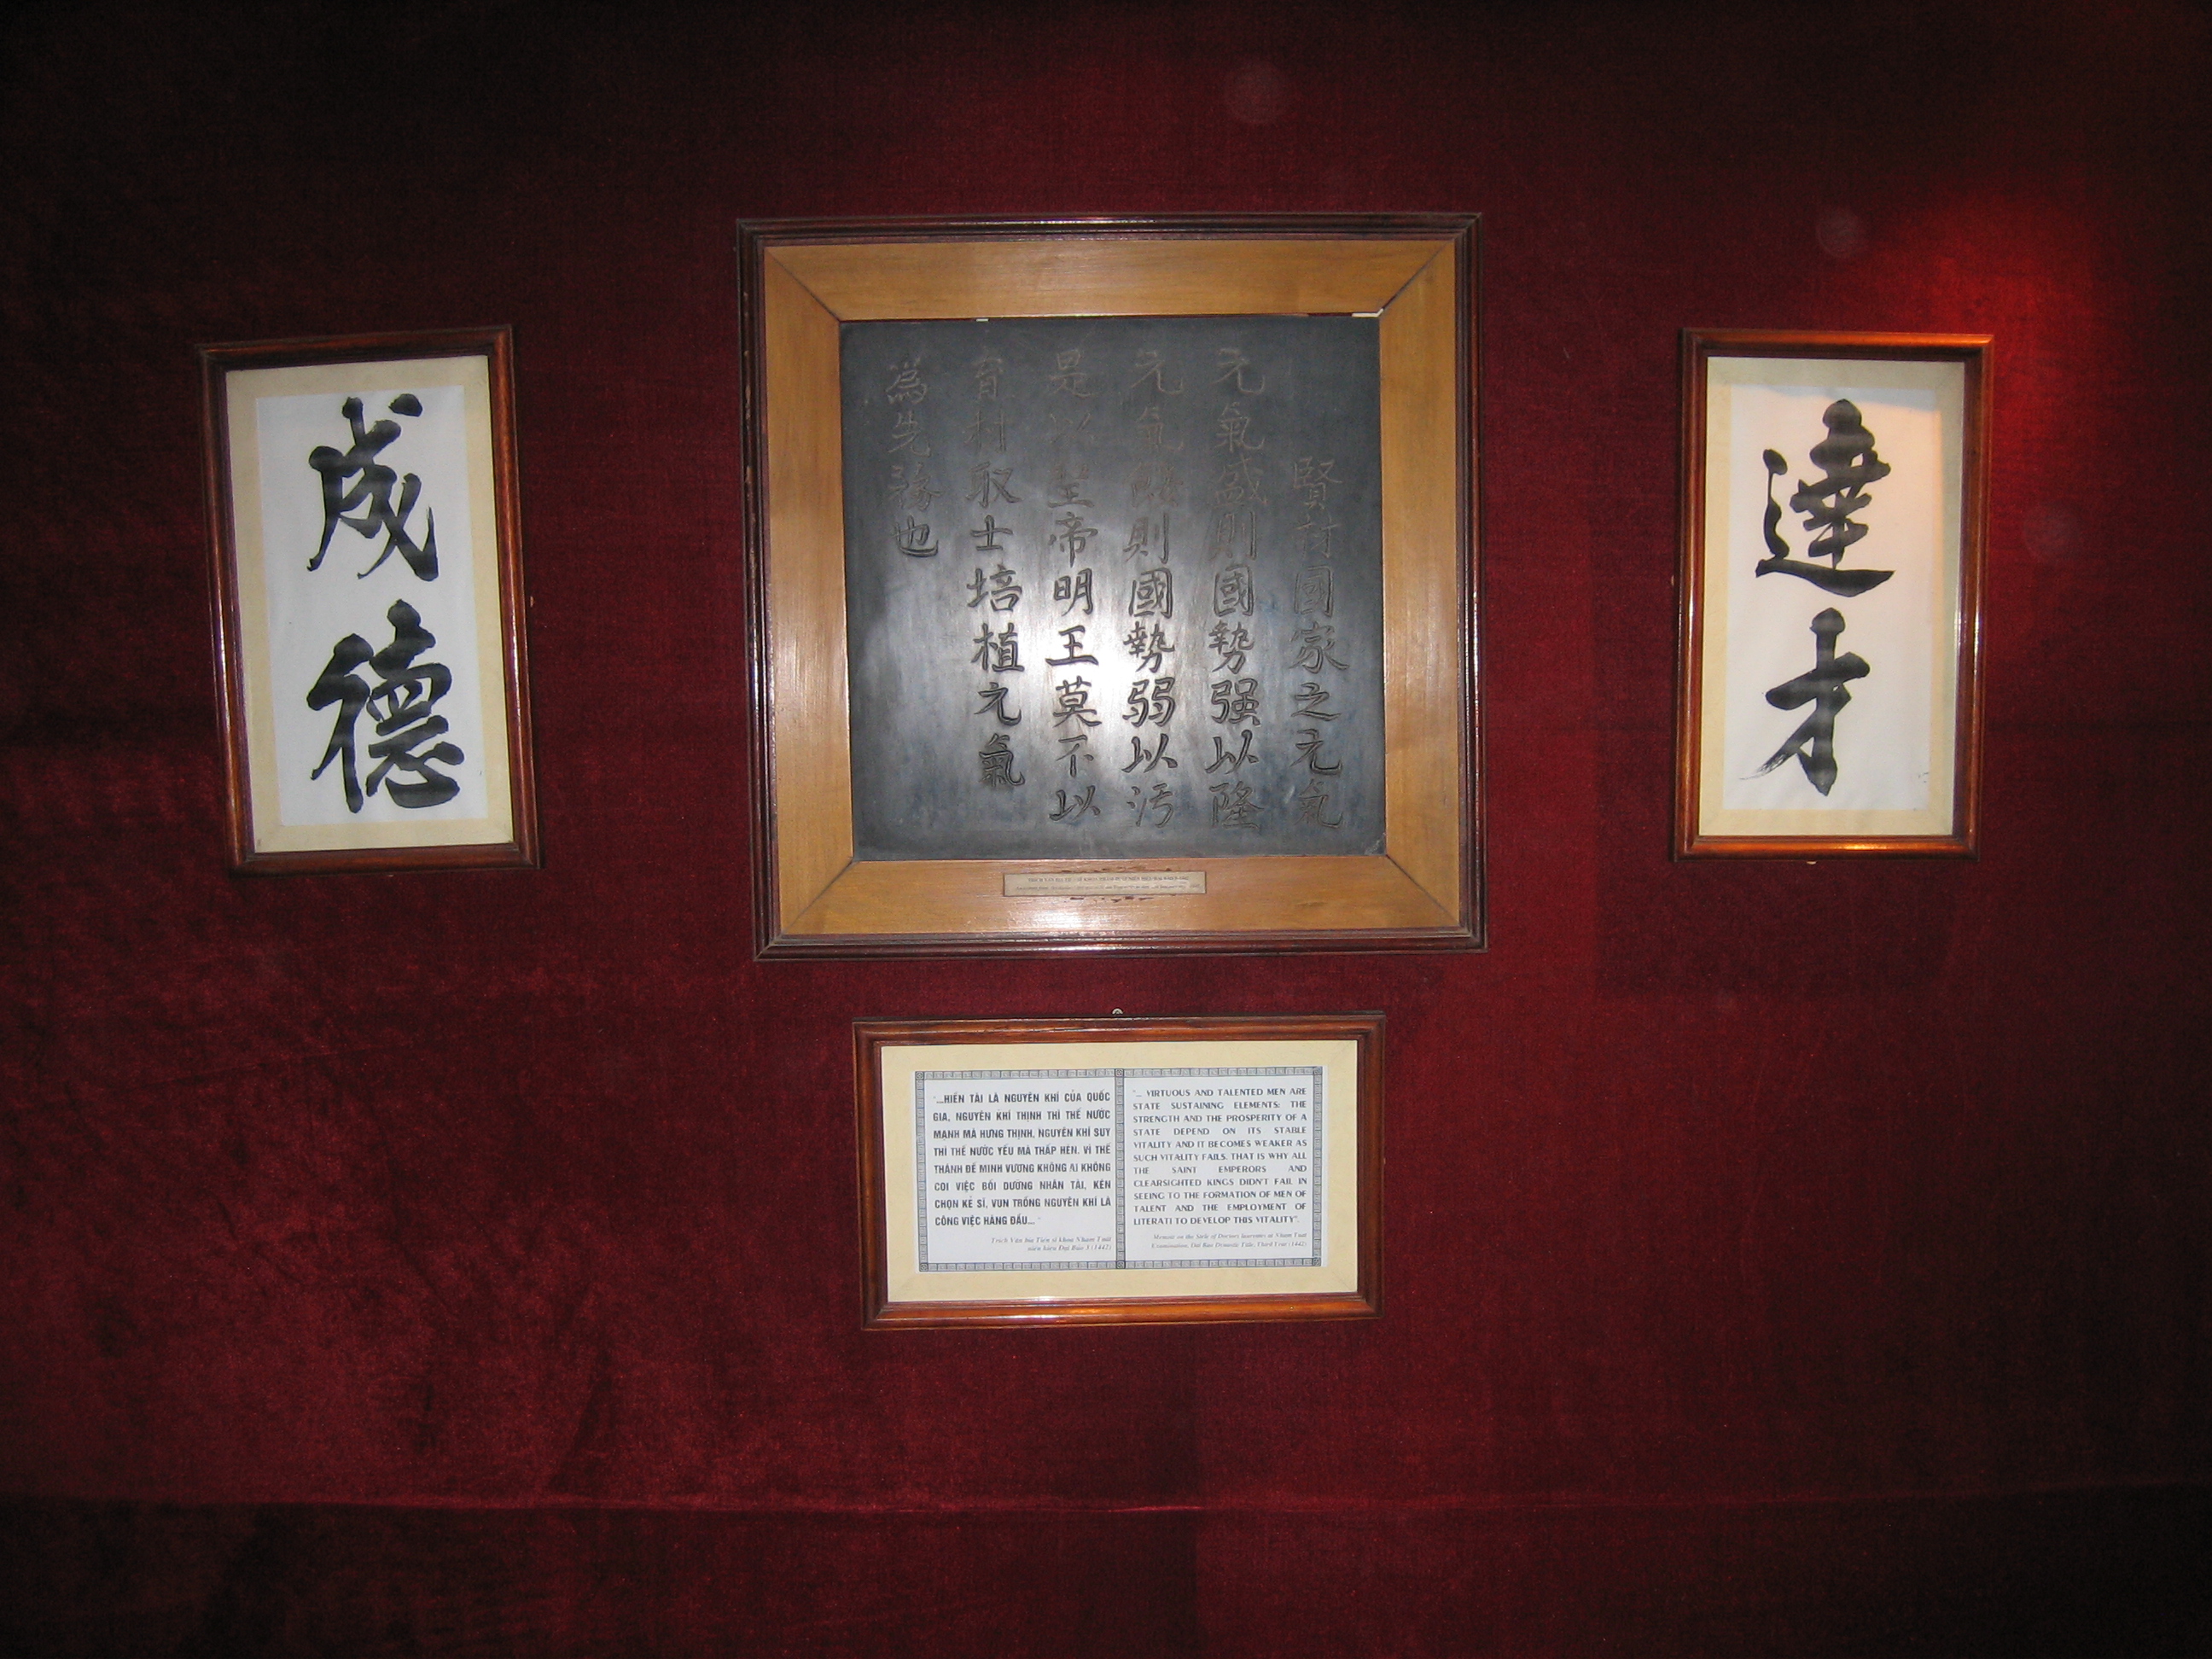 達才
賢材國家之元氣
元氣盛則國勢强以隆
元氣餒則國勢弱以污
是以聖帝明王莫不以
育材取士培植元氣
為先務也
成德
"...HIỀN TÀI LÀ NGUYÊN KHÍ CỦA QUỐC
GIA, NGUYÊN KHÍ THỊNH THÌ THẾ NƯỚC
MẠNH MÀ HƯNG THỊNH, NGUYÊN KHÍ SUY
THÌ THẾ NƯỚC YẾU MÀ THẤP HÈN. VÌ THẾ
THÁNH ĐẾ MINH VƯƠNG KHÔNG AI KHÔNG
COI VIỆC BỒI DƯỠNG NHÂN TÀI, KÉN
CHỌN KẺ SĨ, VUN TRỒNG NGUYÊN KHÍ LÀ
CÔNG VIỆC HÀNG ĐẦU..."
Trích Văn bia Tiến sĩ khoa Nhâm Tuất
niên hiệu Đại Bảo 3 (1442)
"... VIRTUOUS AND TALENTED MEN ARE
STATE SUSTAINING ELEMENTS: THE
STRENGTH AND THE PROSPERITY OF A
STATE DEPEND ON ITS STABLE
VITALITY AND IT BECOMES WEAKER AS
SUCH VITALITY FAILS. THAT IS WHY ALL
THE SAINT EMPERORS AND
CLEARSIGHTED KINGS DIDN'T FAIL IN
SEEING TO THE FORMATION OF MEN OF
TALENT AND THE EMPLOYMENT OF
LITERATI TO DEVELOP THIS VITALITY".
Memoir on the Stele of Doctors laureates at Nham Tuat
Examination, Dai Bao Dynastic Title, Third Year (1442)